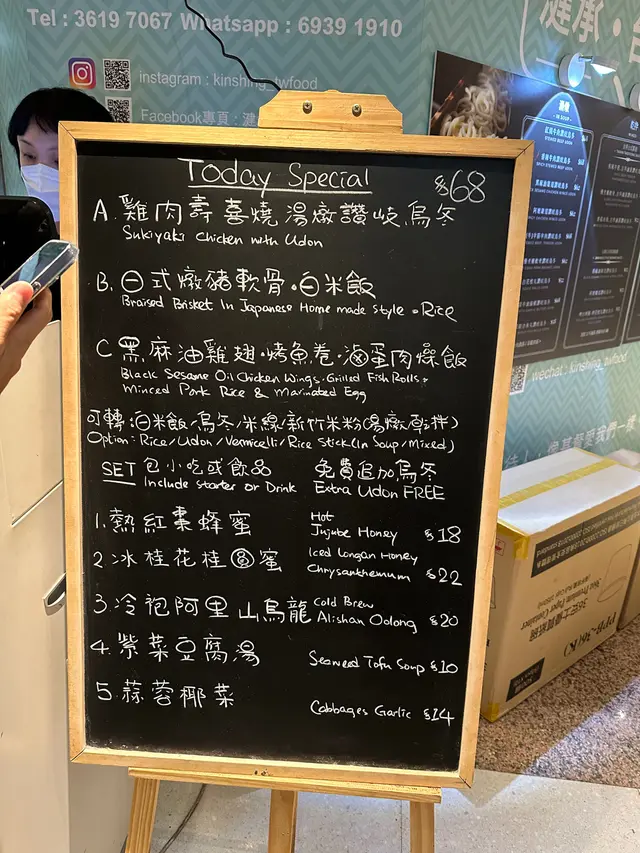 Tel : 3619 7067 Whatsapp : 6939 1910
instagram : kinshing_twfood
Facebook專頁 :
Today Special $68
A. 雞肉壽喜燒湯燉讚岐烏冬
Sukiyaki Chicken with Udon
B. 日式燉豬軟骨・白米飯
Braised Brisket In Japanese Home made style・Rice
C 黑麻油雞翅・烤魚卷・滷蛋肉燥飯
Black Sesame Oil Chicken Wings・Grilled Fish Rolls +
Minced Pork Rice & Marinated Egg
可轉：白米飯/烏冬/米線/新竹米粉(湯燉/乾拌)
Option : Rice/Udon/Vermicelli/Rice Stick(In Soup/Mixed)
SET 包小吃或飲品 免費追加烏冬
Include starter or Drink Extra Udon FREE
1. 熱紅棗蜂蜜 Hot Jujube Honey $18
2 冰桂花桂圓蜜 Iced Longan Honey Chrysanthemum $22
3. 冷袍阿里山烏龍 Cold Brew Alishan Oolong $20
4. 紫菜豆腐湯 Seaweed Tofu Soup $10
5. 蒜蓉椰菜 Cabbages Garlic $14
wechat : kinshing_twfood